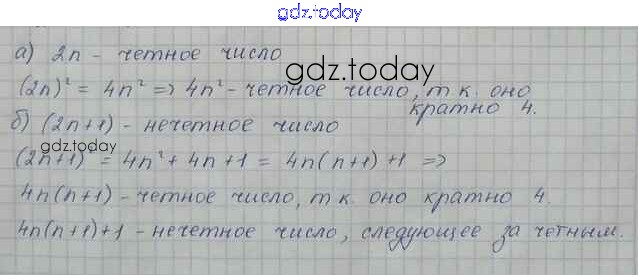 gdz.today
а) 2n - четное число
gdz.today
(2n)² = 4n² => 4n² - четное число, т.к. оно
кратно 4.
б) (2n+1) - нечетное число
gdz.today
(2n+1)² = 4n² + 4n + 1 = 4n(n+1) + 1 =>
4n(n+1) - четное число, т.к. оно кратно 4.
4n(n+1)+1 - нечетное число, следующее за четным.